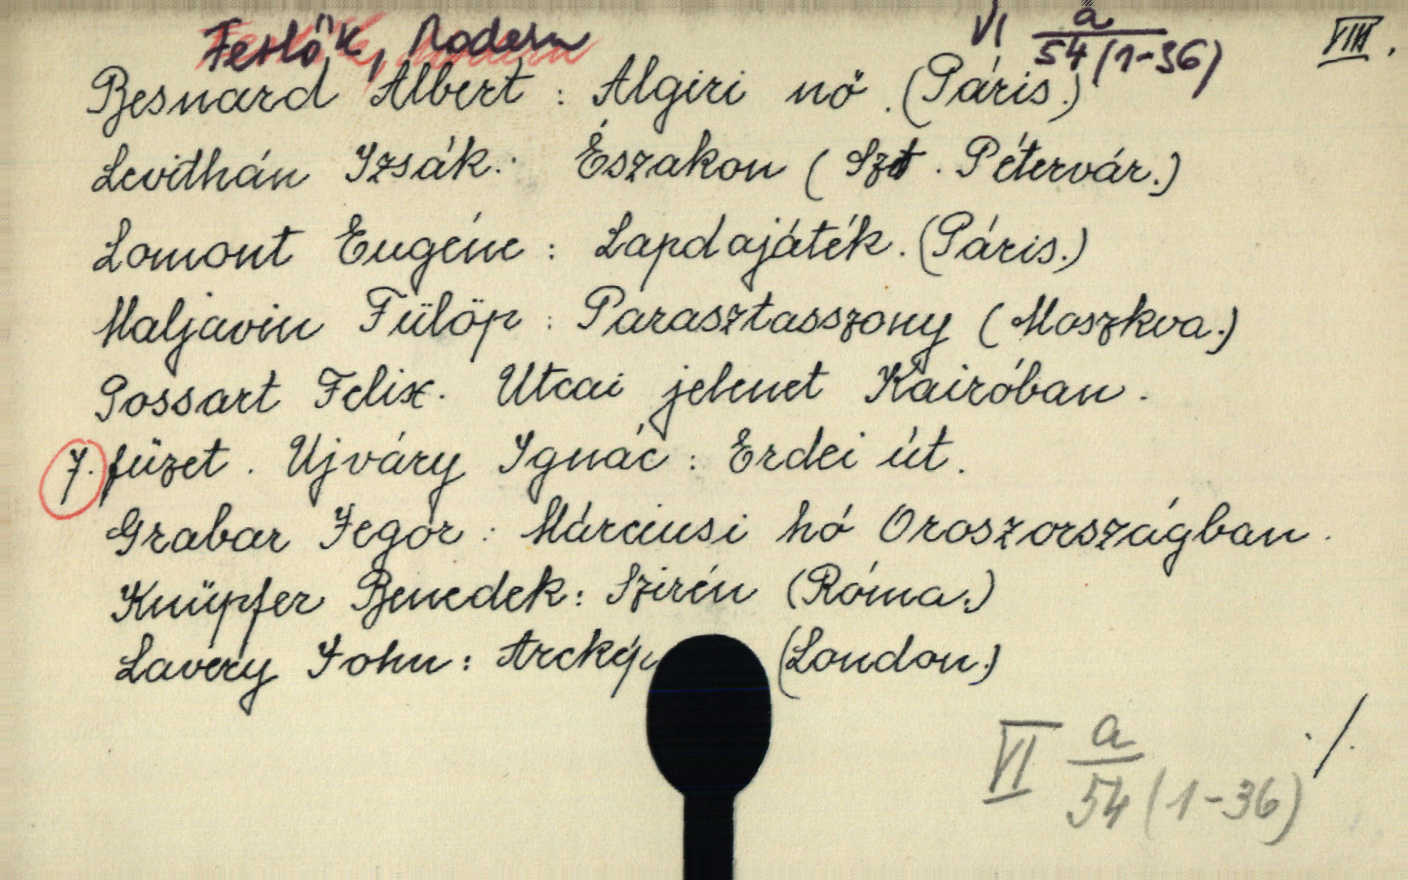 Festők, Modern VI a/54 (1-36) VIII.
Besnard Albert : Algiri nő . (Páris.)
Levithán Izsák. Északon (Szt. Pétervár.)
Lomont Eugéne : Lapdajáték. (Páris.)
Maljavin Fülöp : Parasztasszony (Moszkva.)
Possart Felix. Utcai jelenet Kairóban.
7. füzet. Ujváry Ignác : Erdei út.
Grabar Jegor : Márciusi hó Oroszországban.
Knüpfer Benedek : Szirén (Róma.)
Lavery John : (London.)
VI a/54 (1-36) ./.